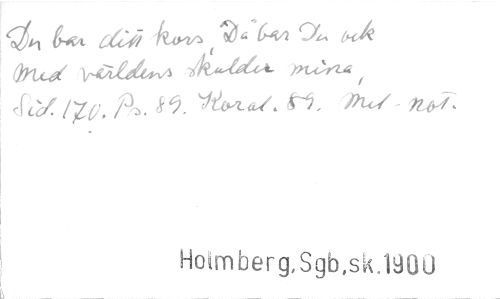 Du bar ditt kors, Då bar Du ock
med världens skulder mina,
Sid. 170. Ps. 89. Koral. 89. Mel-not.
Holmberg, Sgb, sk. 1900